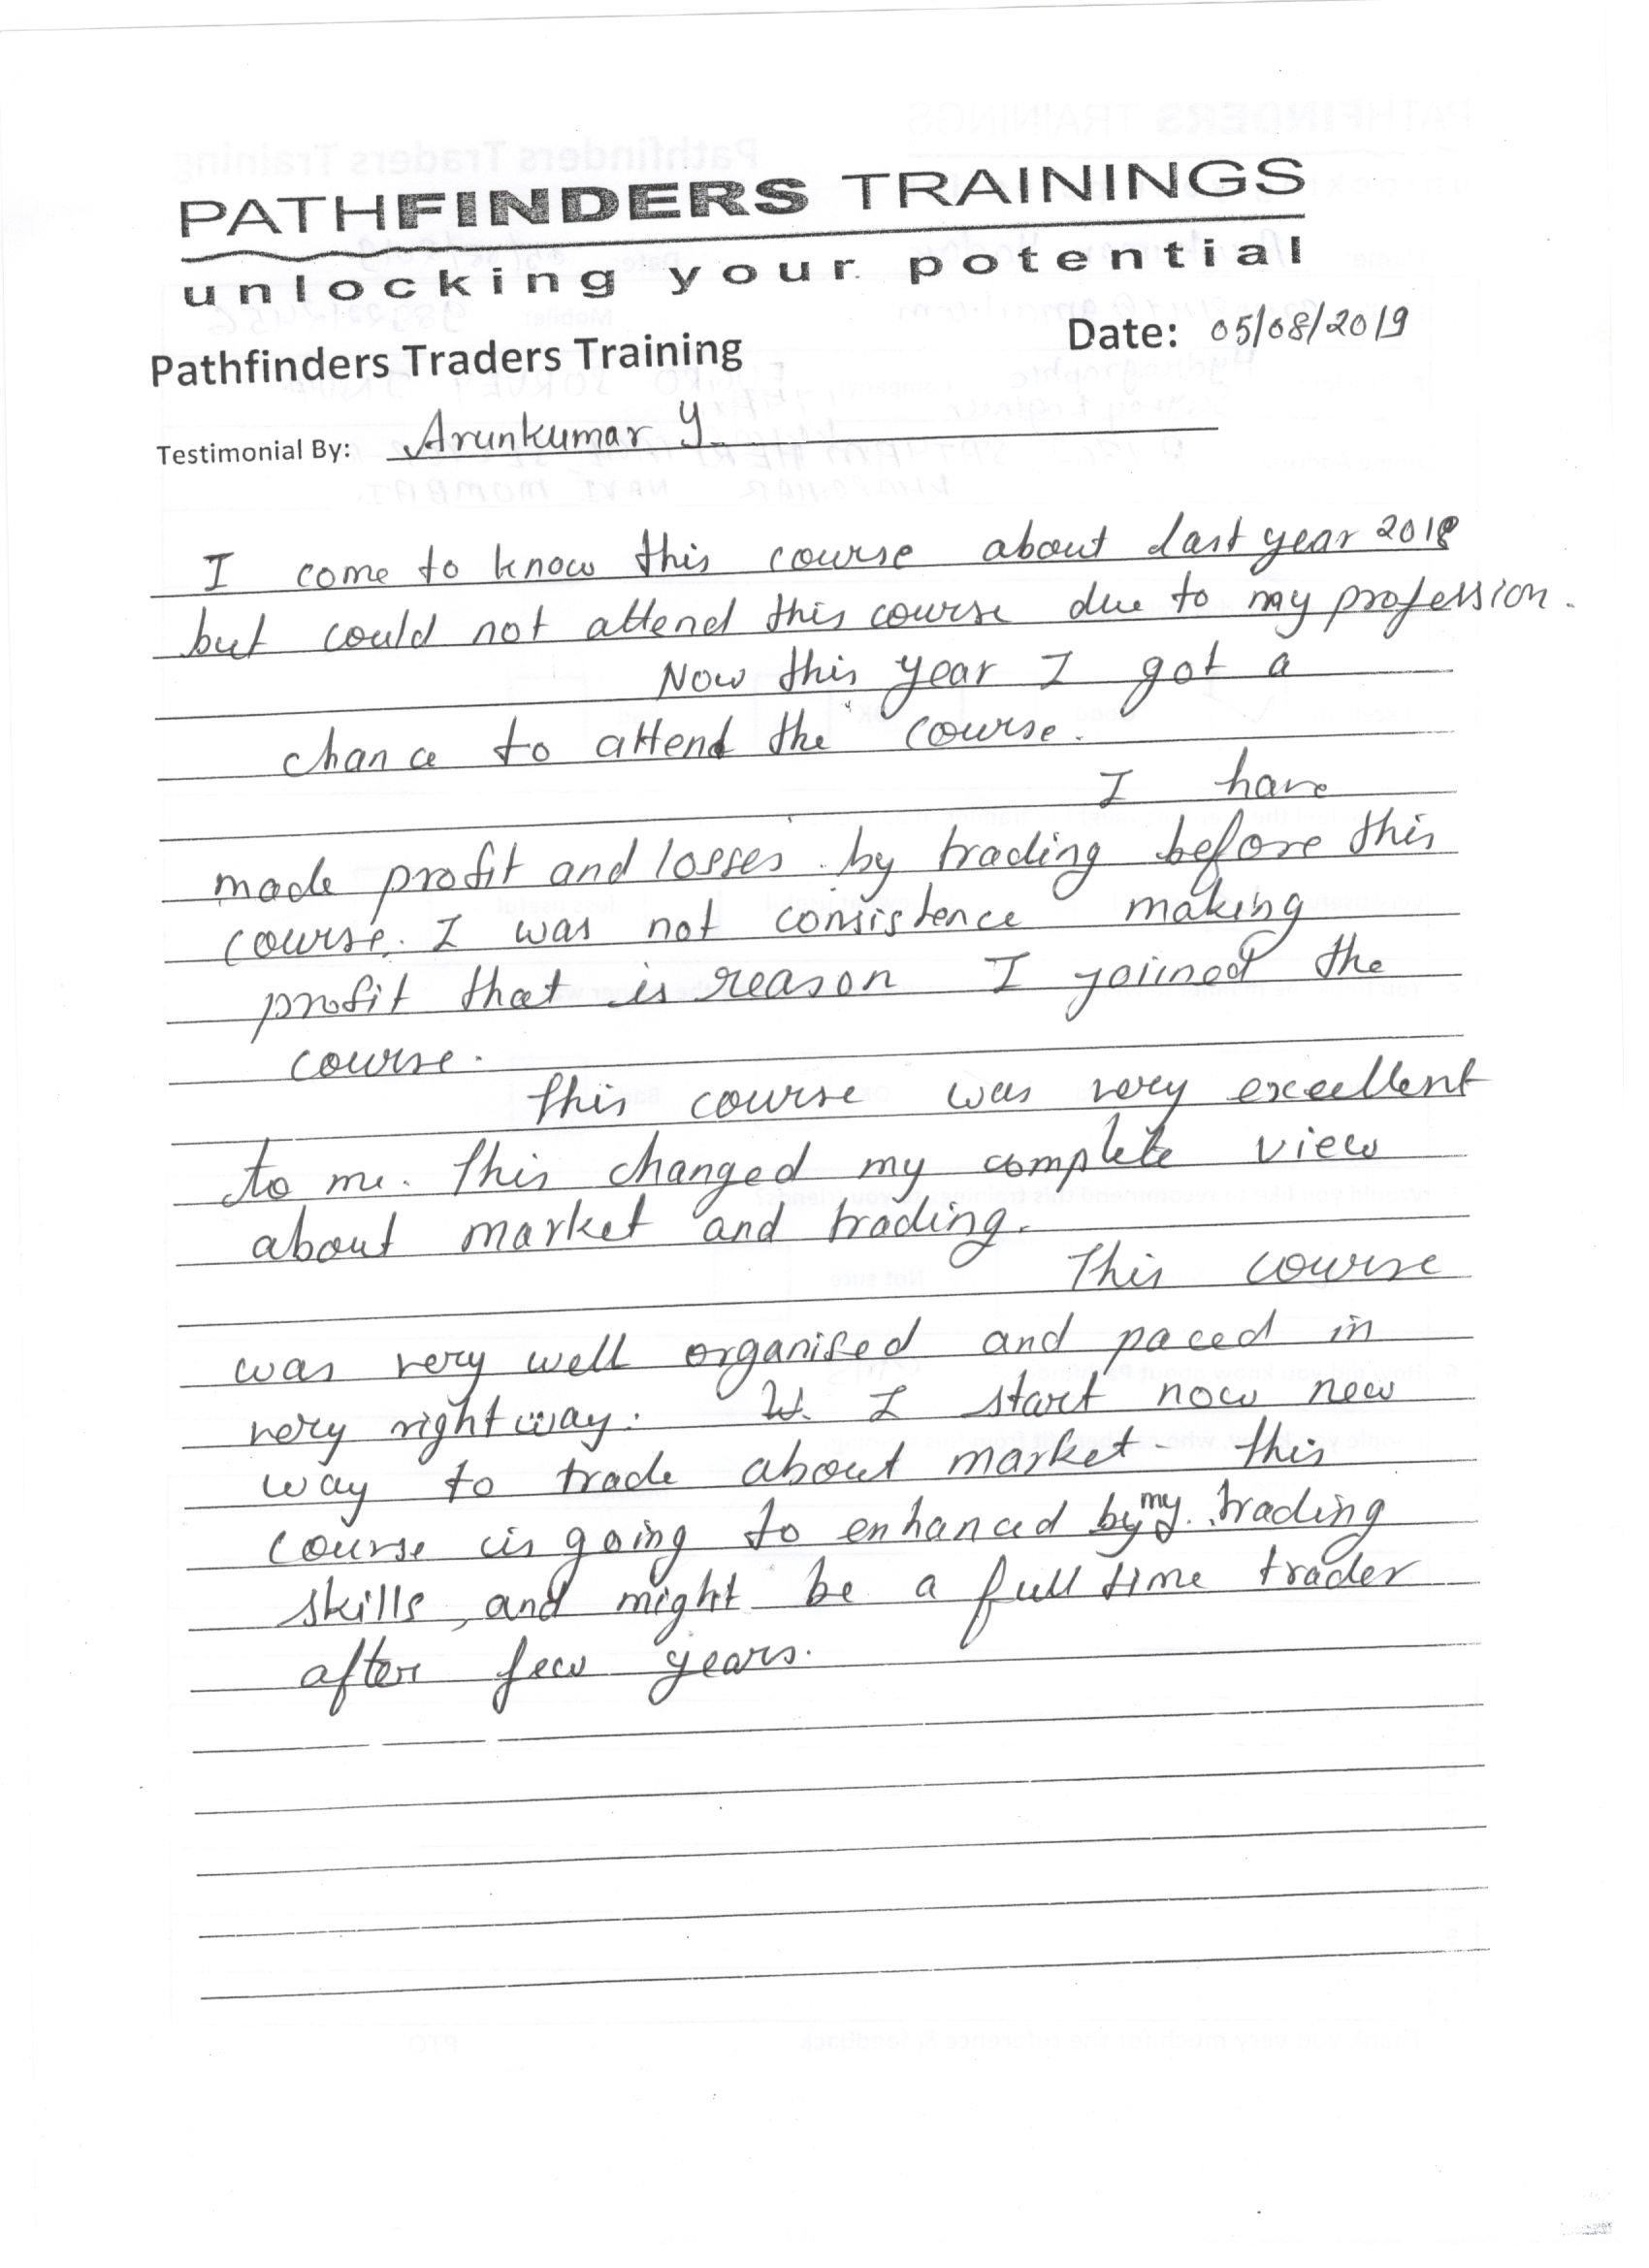 PATHFINDERS TRAININGS
unlocking your potential
Pathfinders Traders Training
Date: 05/08/2019
Testimonial By: Arunkumar Y.
I come to know this course about last year 2018
but could not attend this course due to my profession.
Now this year I got a
chance to attend the course.
I have
made profit and losses by trading before this
course. I was not consistence making
profit that is reason I joiined the
course.
This course was very excellent
to me. This changed my complete view
about market and trading.
This course
was very well organised and paced in
very right way. I start now new
way to trade about market - this
course is going to enhanced by my trading
skills, and might be a full time trader
after few years.